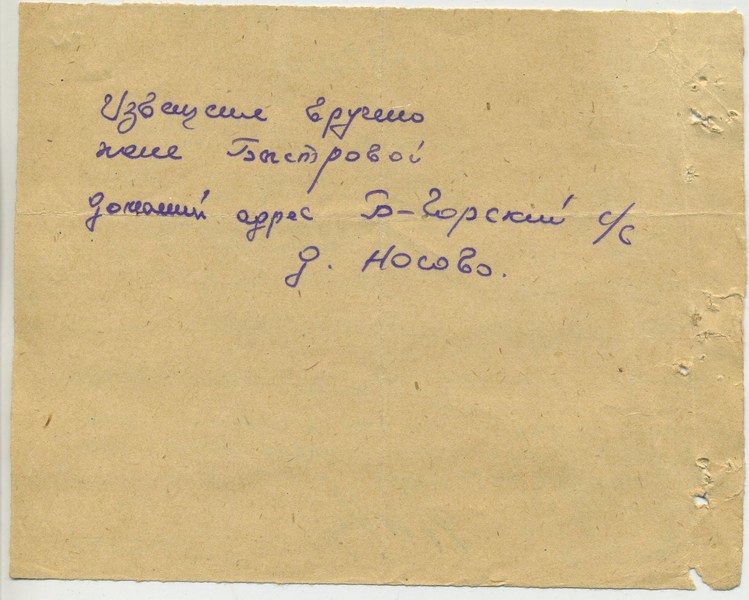 Извещение вручено
жене Быстровой
домашний адрес Б-Горский с/с
д. Носово.